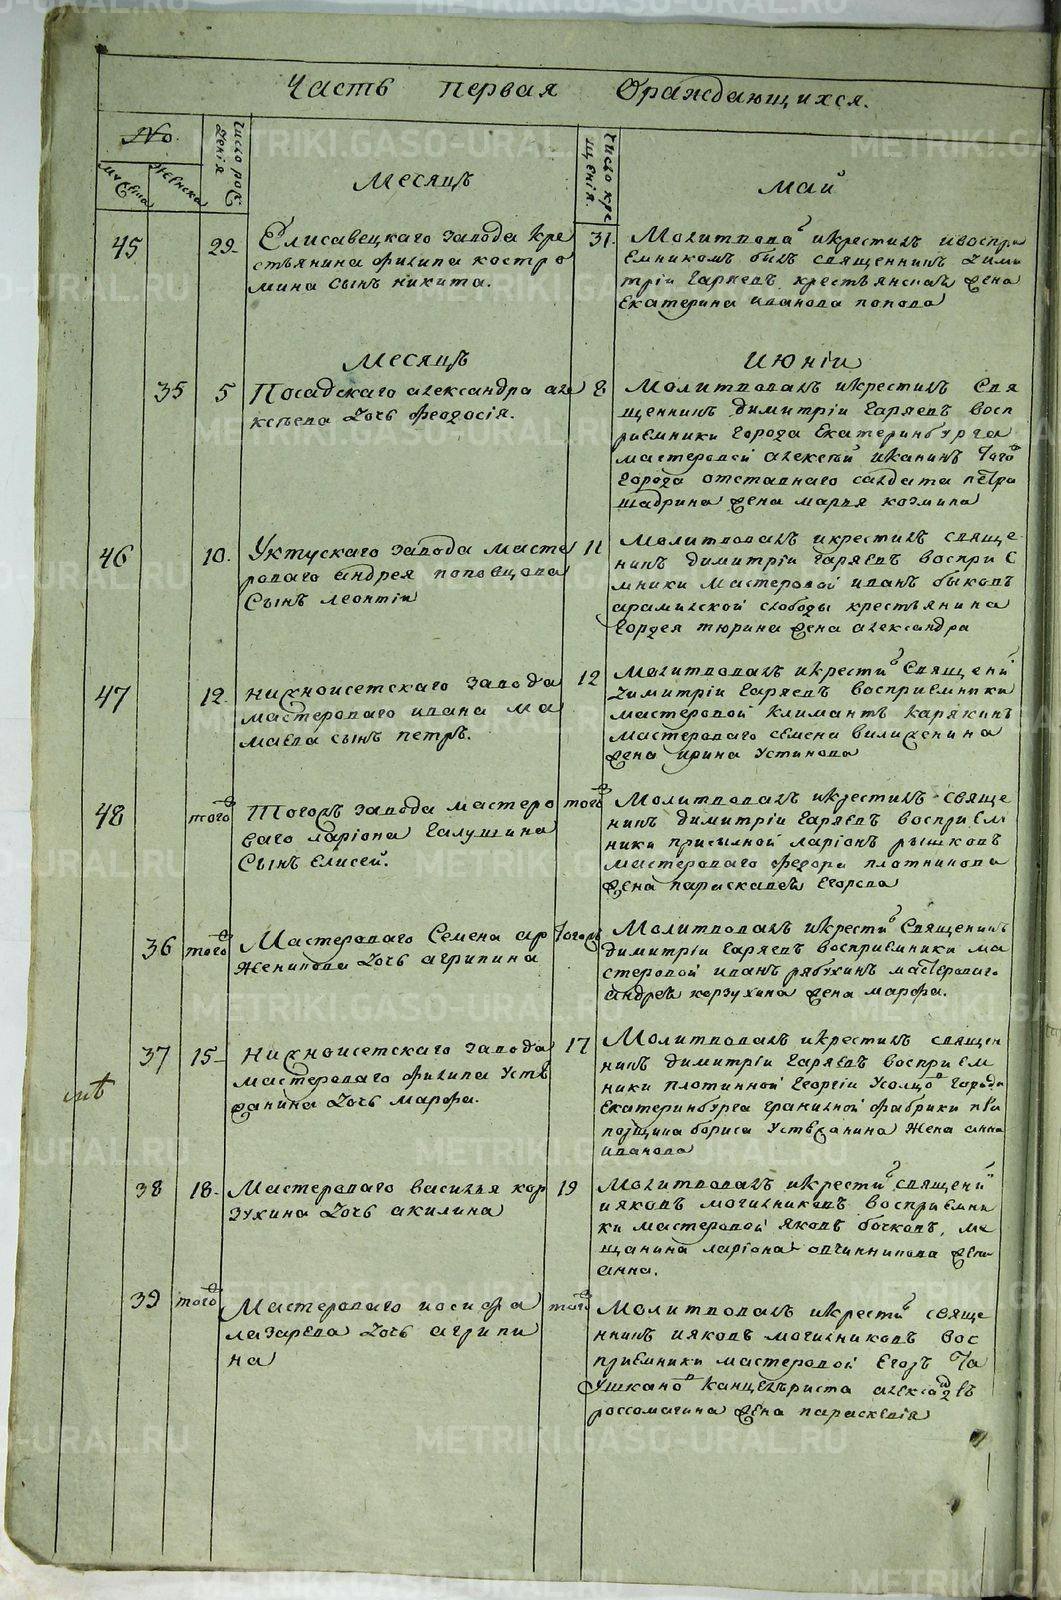 Часть первая Ораждающихся.
№
мужеска
женска
число рож
дения
Месяцъ
число кре
щенія.
май
45
29.
Елисавецкаго завода кре
стьянина филипа костро
мина сынъ никита.
31.
Молитвовал икрестилъ ивоспри
емникомъ былъ священникъ дими
трiи Гаряевъ крестьянская жена
Екатерина иванова попова
Месяцъ
июнiи
35
5
Посадскаго александра але
ксѣева дочь феодосiя.
8
Молитвовалъ икрестилъ Свя
щенникъ димитрiи Гаряевъ восп
риемники города Екатеринбурга
мастеровой алексѣй иканинъ того
города отставнаго салдата петра
шадрина жена марья козмина
46
10.
Уктускаго завода масте
роваго андрея поповцова
Сынъ леонтiи
11
Молитвовалъ икрестилъ свяще
никъ димитрiи Гаряевъ восприе
мники мастеровой иванъ быковъ
арамилской слободы крестьянина
Гордея тюрина жена александра
47
12.
нижноисетскаго завода
мастероваго ивана ма
маева сынъ петръ.
12
Молитвовалъ икрестил Священи
димитрiи Гаряевъ восприемники
мастеровой климантъ карякинъ
мастероваго семена вилиженина
жена ирина Устинова
48
того
Тогожъ завода мастеро
ваго ларiона Галушина
Сынъ Елисей.
того
Молитвовалъ икрестилъ свяще
никъ димитрiи Гаряевъ восприем
ники присылной ларiонъ рышковъ
мастероваго федора плотникова
жена параскавея Егорова
36
того
Мастероваго Семена ар
женикова дочь агрипина
тогожъ
Молитвовалъ икрестил Священикъ
димитрiи Гаряевъ восприемники ма
стеровой иванъ рябухинъ мастероваго
андрея корзухина жена марфа.
37
15
нижноисетскаго завода
мастероваго филипа Устѣ
жанина дочь марфа.
17
Молитвовалъ икрестилъ священ
никъ димитрiи Гаряевъ восприем
ники плотинной Георгiи Усолцов Города
Екатеринбурга Гранилной фабрики
бориса Устѣжанина жена анна
иванова
38
18.
Мастероваго василья кор
зухина дочь акилина
19
Молитвовалъ икрестил священи
ияковъ могилниковъ восприемни
ки мастеровой яковъ бочковъ, ме
щанина ларiона овчинникова жена
анна.
39
того
Мастероваго иосифа
лазарева дочь агрипи
на
того
Молитвовалъ икрестил свяще
нникъ ияковъ могилниковъ вос
приемники мастеровой Егоръ Та
ушканов канцеляриста
россомагина жена параскевiя